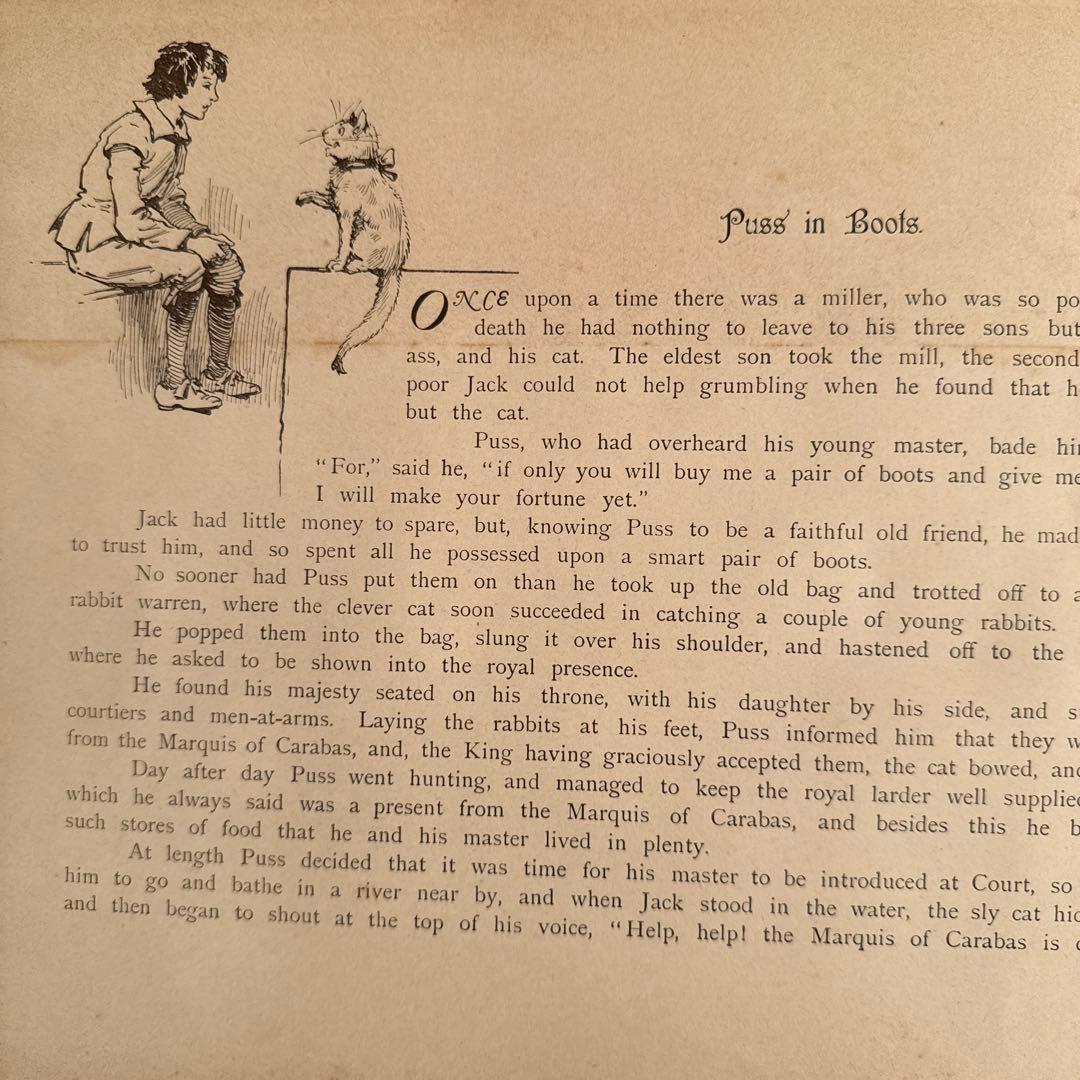 Puss in Boots.
ONCE upon a time there was a miller, who was so
death he had nothing to leave to his three sons but
ass, and his cat. The eldest son took the mill, the second
poor Jack could not help grumbling when he found that
but the cat.
Puss, who had overheard his young master, bade
"For," said he, "if only you will buy me a pair of boots and give me
I will make your fortune yet."
Jack had little money to spare, but, knowing Puss to be a faithful old friend, he
to trust him, and so spent all he possessed upon a smart pair of boots.
No sooner had Puss put them on than he took up the old bag and trotted off to
rabbit warren, where the clever cat soon succeeded in catching a couple of young rabbits.
He popped them into the bag, slung it over his shoulder, and hastened off to the
where he asked to be shown into the royal presence.
He found his majesty seated on his throne, with his daughter by his side, and
courtiers and men-at-arms. Laying the rabbits at his feet, Puss informed him that they
from the Marquis of Carabas, and, the King having graciously accepted them, the cat bowed,
Day after day Puss went hunting, and managed to keep the royal larder well
which he always said was a present from the Marquis of Carabas, and besides this he
such stores of food that he and his master lived in plenty.
At length Puss decided that it was time for his master to be introduced at Court, so
him to go and bathe in a river near by, and when Jack stood in the water, the sly cat
and then began to shout at the top of his voice, "Help, help! the Marquis of Carabas is